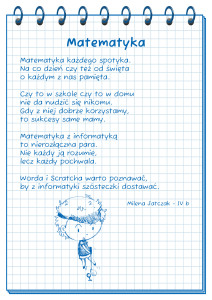 Matematyka
Matematyka każdego spotyka.
Na co dzień czy też od święta
o każdym z nas pamięta.
Czy to w szkole czy to w domu
nie da nudzić się nikomu.
Gdy z niej dobrze korzystamy,
to sukcesy same mamy.
Matematyka z informatyką
to nierozłączna para.
Nie każdy ją rozumie,
lecz każdy pochwala.
Worda i Scratcha warto poznawać,
by z informatyki szósteczki dostawać.
Milena Jatczak - IV b